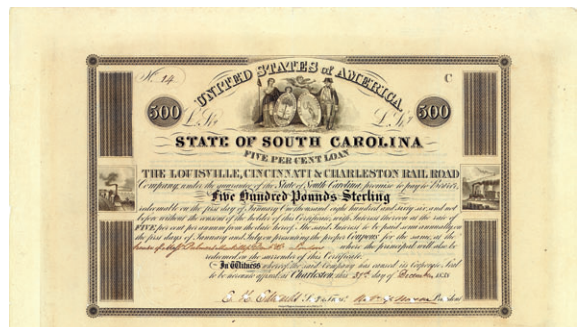 No. 24
C
UNITED STATES of AMERICA
500 500
STATE OF SOUTH CAROLINA
FIVE PER CENT LOAN
THE LOUISVILLE, CINCINNATI & CHARLESTON RAIL ROAD
Company, under the guarantee of the State of South Carolina, promise to pay to
Five Hundred Pounds Sterling
redeemable on the first day of January One thousand eight hundred and sixty six and not
before without the consent of the holder of this Certificate, with Interest thereon at the rate of
FIVE per cent per annum from the date hereof. The said Interest to be paid semi annually on
the first days of January and July on presenting the proper Coupons for the same, at the
where the principal will also be
redeemed on the surrender of this Certificate.
In Witness whereof the said Company has caused its Corporate Seal
to be hereunto affixed at Charleston, this day of December